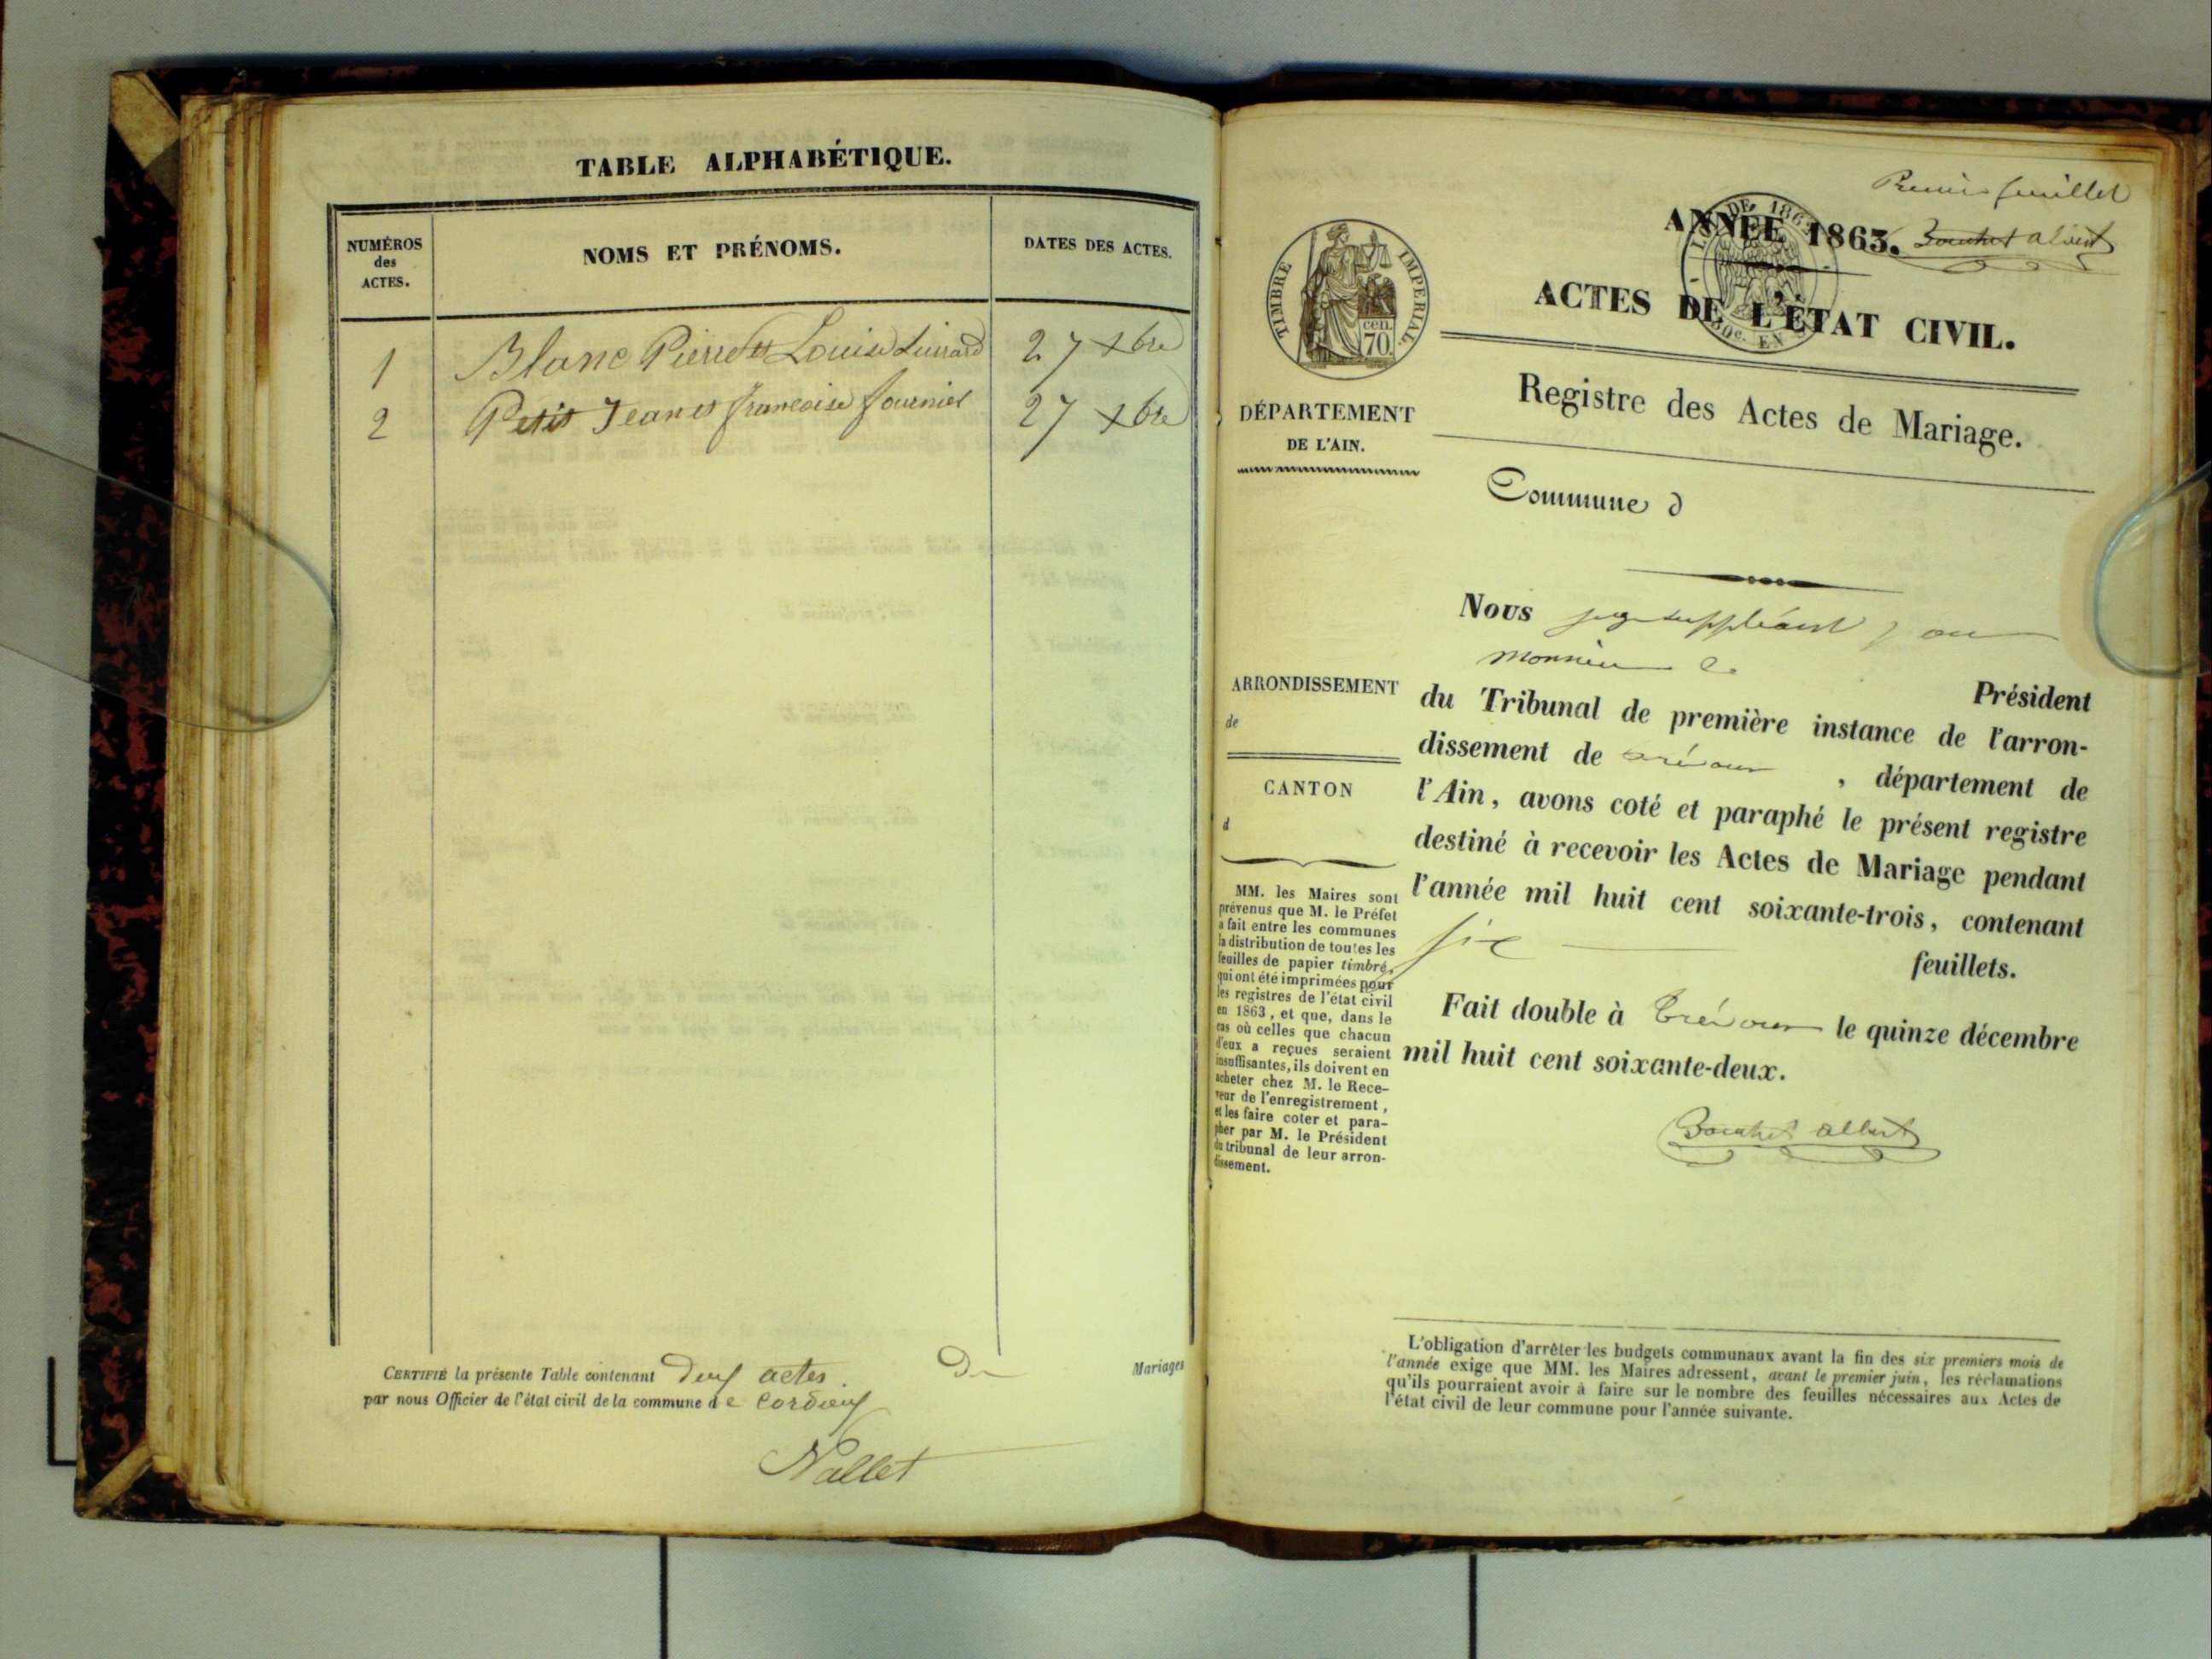 TABLE ALPHABÉTIQUE.
NUMÉROS
des
ACTES.
NOMS ET PRÉNOMS.
DATES DES ACTES.
1 Blanc Pierre et Louise 27 xbre
2 Petit Jean et françoise fournier 27 xbre
CERTIFIÉ la présente Table contenant Deux actes. De Mariages
par nous Officier de l'état civil de la commune de Cordieux
Nallet
Premier feuillet
ANNÉE 1863.
TIMBRE IMPÉRIAL.
cen.
70.
ACTES DE L'ÉTAT CIVIL.
Registre des Actes de Mariage.
DÉPARTEMENT
DE L'AIN.
Commune d
Nous juge suppléant pour
Monsieur le
Président
ARRONDISSEMENT
de
CANTON
d
du Tribunal de première instance de l'arron-
dissement de Trévoux, département de
l'Ain, avons coté et paraphé le présent registre
destiné à recevoir les Actes de Mariage pendant
l'année mil huit cent soixante-trois, contenant
six feuillets.
Fait double à Trévoux le quinze décembre
mil huit cent soixante-deux.
MM. les Maires sont
prévenus que M. le Préfet
a fait entre les communes
la distribution de toutes les
feuilles de papier timbré,
qui ont été imprimées pour
les registres de l'état civil
en 1863, et que, dans le
cas où celles que chacun
d'eux a reçues seraient
insuffisantes, ils doivent en
acheter chez M. le Rece-
veur de l'enregistrement,
et les faire coter et para-
pher par M. le Président
du tribunal de leur arron-
dissement.
L'obligation d'arrêter les budgets communaux avant la fin des six premiers mois de
l'année exige que MM. les Maires adressent, avant le premier juin, les réclamations
qu'ils pourraient avoir à faire sur le nombre des feuilles nécessaires aux Actes de
l'état civil de leur commune pour l'année suivante.